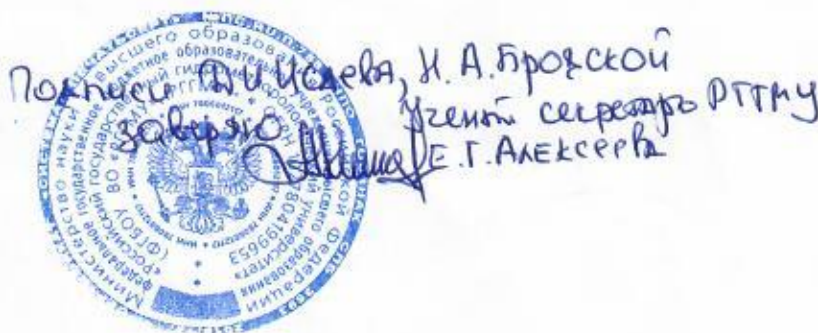 Подписи Д.И. Исаева, Н.А. Бродской
заверяю Ученый секретарь РГГМУ
Е.Г. Алексеева
Министерство науки высшего образования Российской Федерации
федеральное государственное бюджетное образовательное учреждение высшего образования
«Российский государственный гидрометеорологический университет»
(ФГБОУ ВО «РГГМУ»)